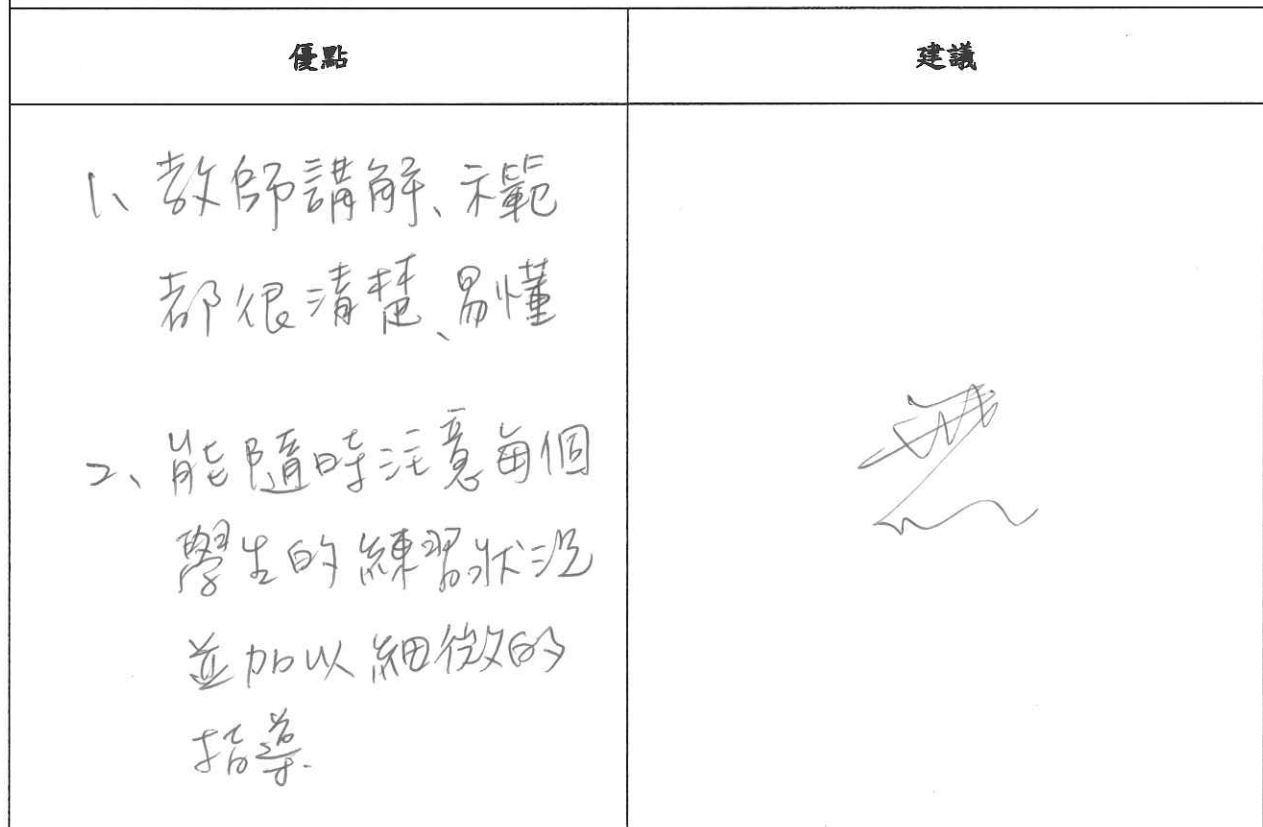 優點
建議
1、教師講解、示範
都很清楚、易懂
2、能隨時注意每個
學生的練習狀況
並加以細微的
指導.
無